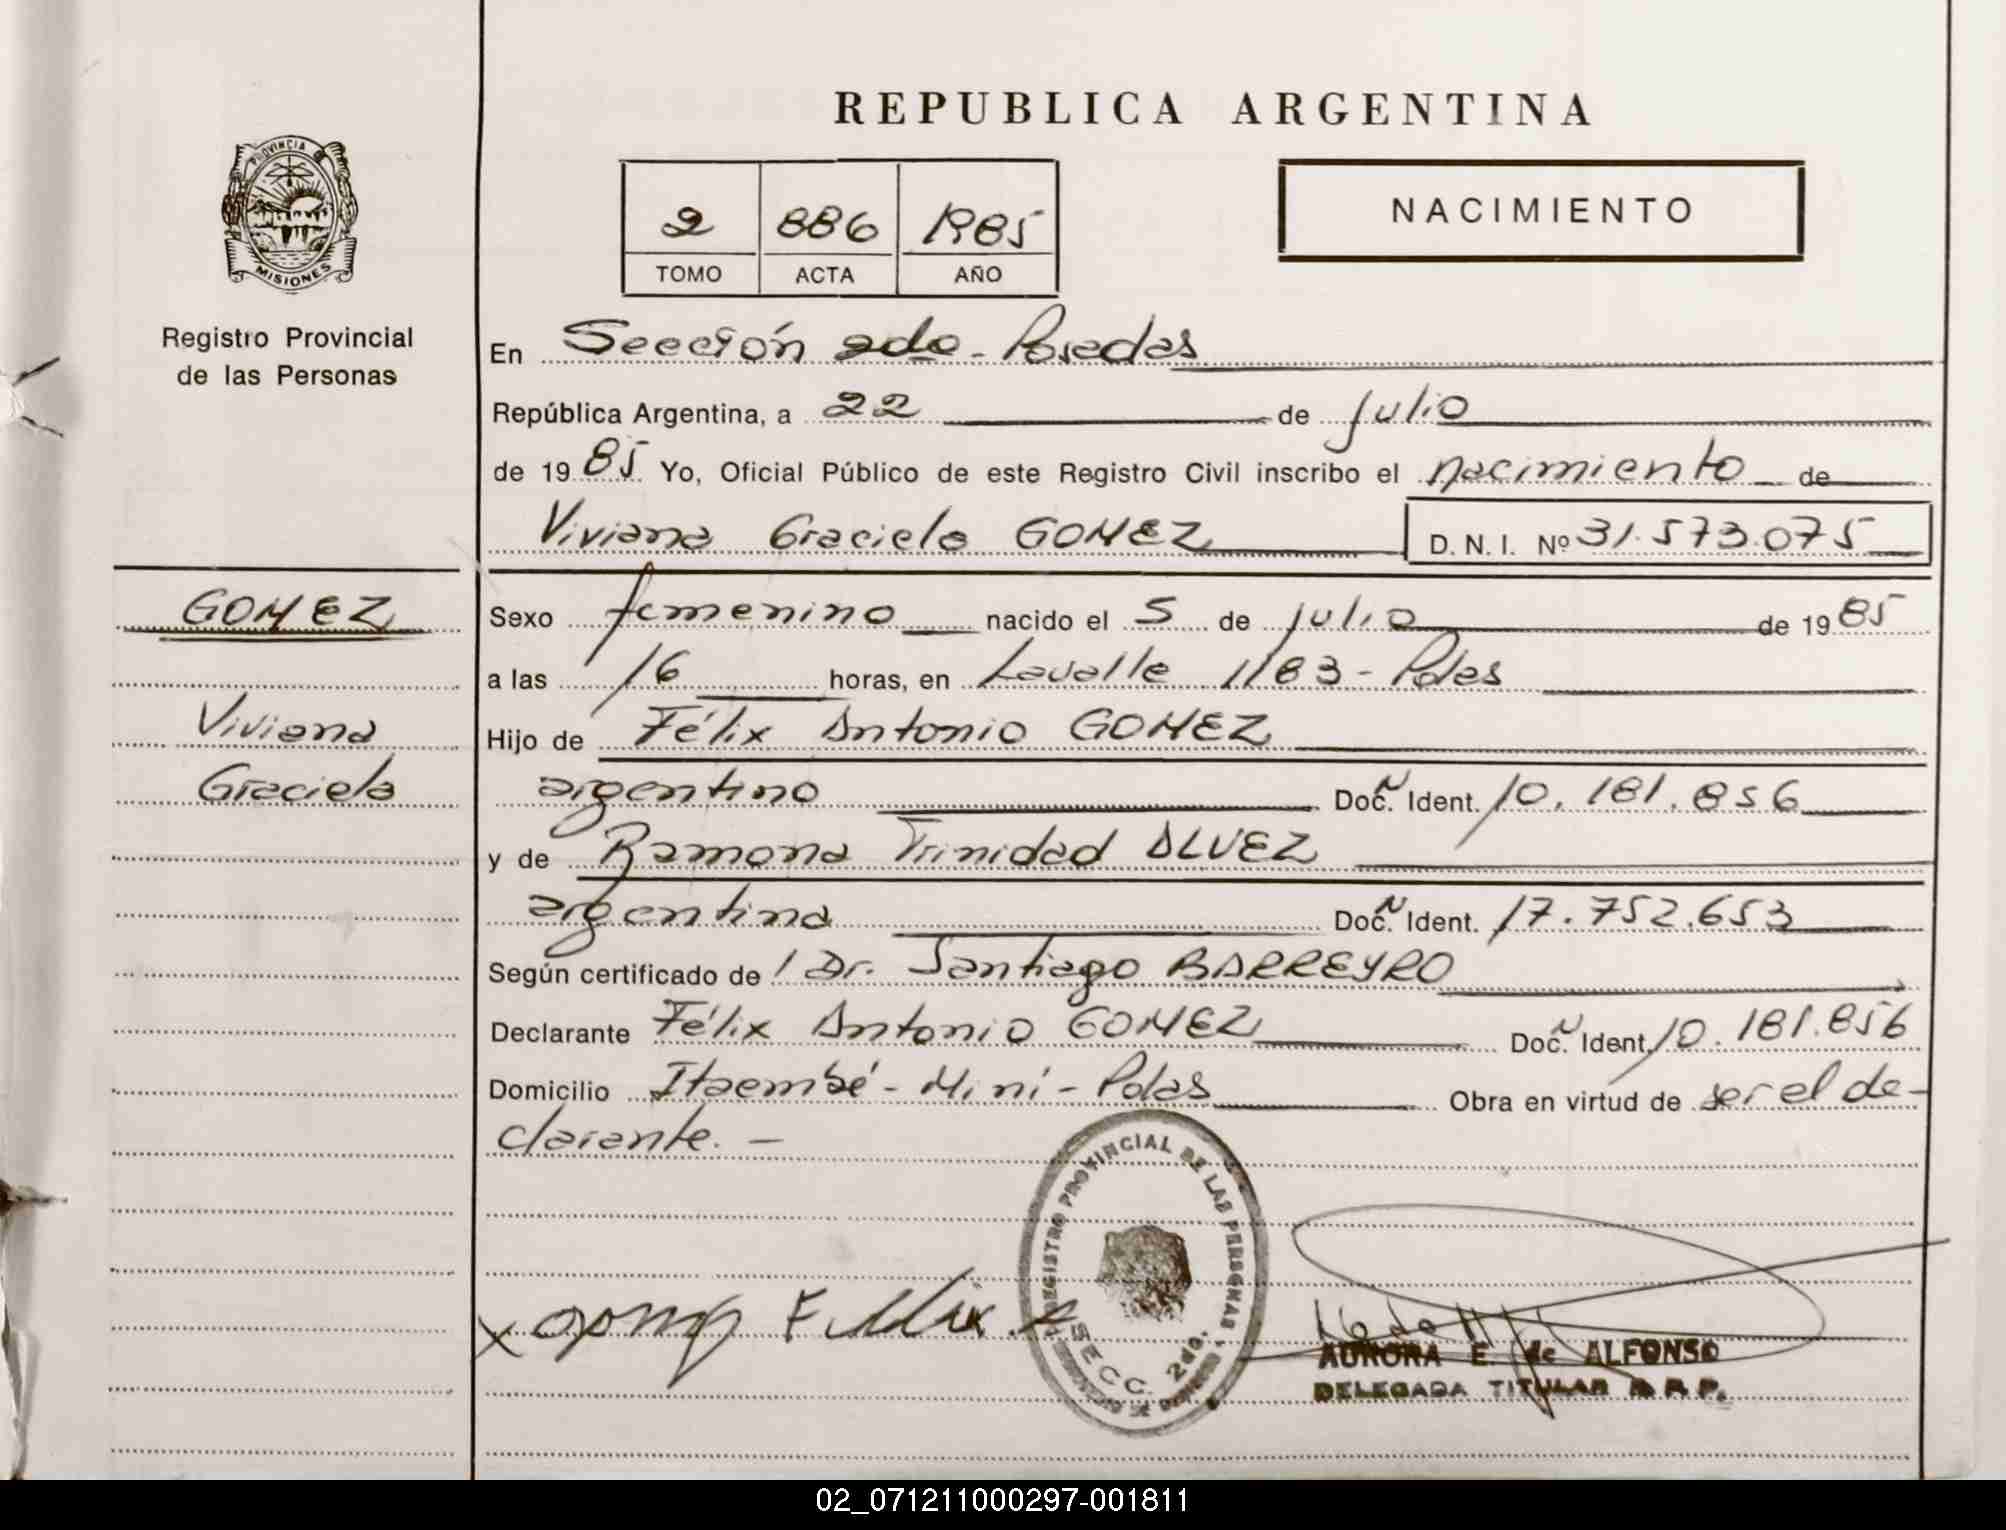 REPUBLICA ARGENTINA
PROVINCIA DE
MISIONES
Registro Provincial
de las Personas
2 886 1985
TOMO ACTA AÑO
NACIMIENTO
En Sección 2da - Posadas
República Argentina, a 22 de julio
de 1985 Yo, Oficial Público de este Registro Civil inscribo el nacimiento de
Viviana Graciela GOMEZ D. N. I. Nº 31.573.075
GOMEZ
Viviana
Graciela
Sexo femenino nacido el 5 de julio de 1985
a las 16 horas, en Lavalle 1183 - Pdas
Hijo de Félix Antonio GOMEZ
argentino Doc. Ident. 10.181.856
y de Ramona Trinidad ALVEZ
argentina Doc. Ident. 17.752.653
Según certificado de Dr. Santiago BARREYRO
Declarante Félix Antonio GOMEZ Doc. Ident. 10.181.856
Domicilio Itaembé - Miní - Pdas Obra en virtud de ser el de-
clarante. -
REGISTRO PROVINCIAL DE LAS PERSONAS
SECC. 2da.
AURORA E. de ALFONSO
DELEGADA TITULAR R. P. P.
02_071211000297-001811